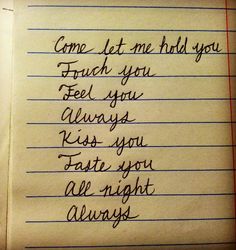 Come let me hold you
Touch you
Feel you
Always
Kiss you
Taste you
All night
Always